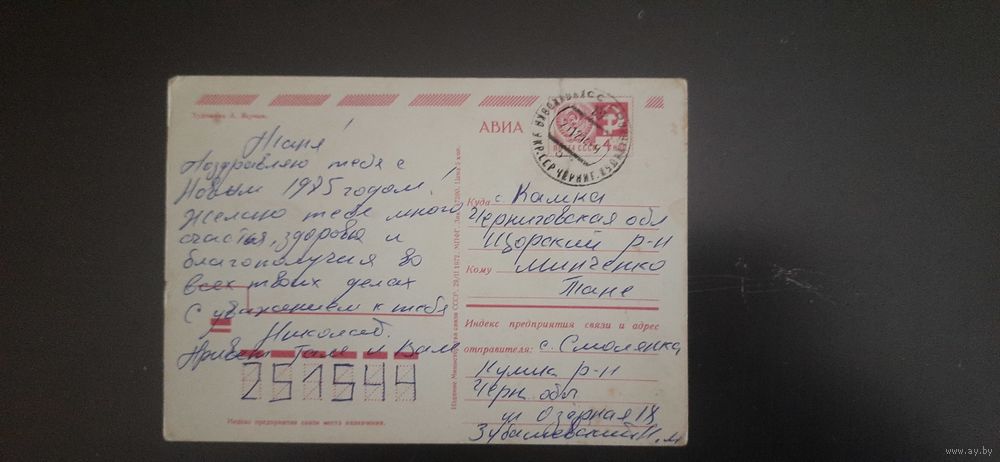 Художник Л.
АВИА
ПОЧТА СССР 4
Таня!
Поздравляю тебя с
Новым 1985 годом!
Желаю тебе много
счастья, здоровья и
благополучия во
всех твоих делах
С уважением к тебе
Николай.
Привет Гале и
251544
Индекс предприятия связи места назначения.
Издание Министерства связи СССР. 29/II 1972. МПФГ.
Куда с. Камка
Черниговская обл
Щорский р-н
Кому Минченко
Тане
Индекс предприятия связи и адрес
отправителя: с. Смолянка
Кулик р-н
Черн. обл
ул Озёрная 18
www.ay.by